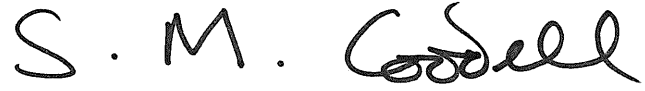 S. M. Goodell